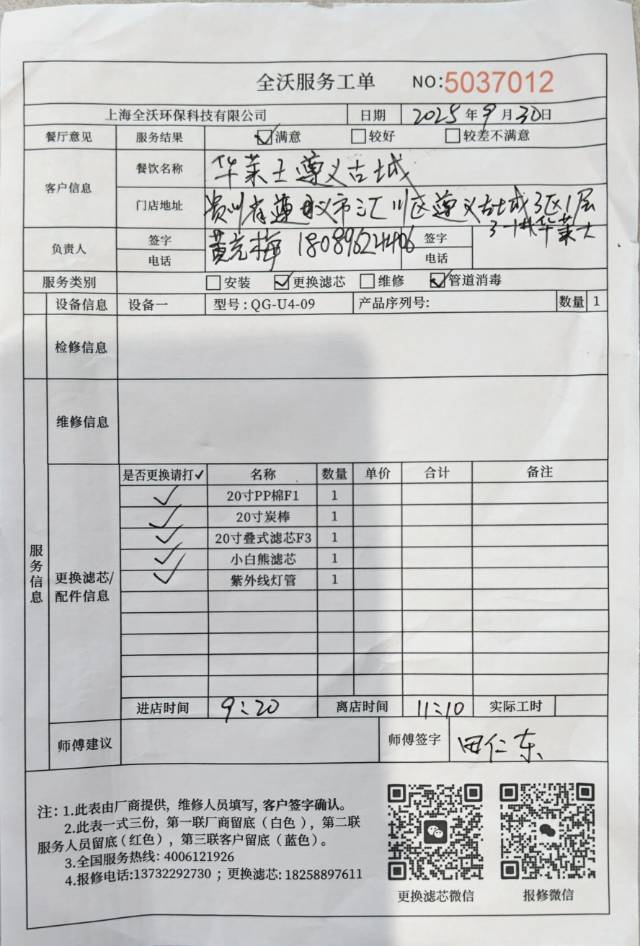 全沃服务工单 NO:5037012
上海全沃环保科技有限公司 日期 2025年9月30日
餐厅意见 服务结果 ☑满意 □较好 □较差不满意
客户信息 餐饮名称 华莱士遵义古城
门店地址 贵州省遵义市汇川区遵义古城3区1层
3-1栋华莱士
负责人 签字 黄克梅 签字
电话 18089624406 电话
服务类别 □安装 ☑更换滤芯 □维修 ☑管道消毒
设备信息 设备一 型号:QG-U4-09 产品序列号: 数量 1
检修信息
维修信息
服务信息
更换滤芯/配件信息
是否更换请打✓ 名称 数量 单价 合计 备注
✓ 20寸PP棉F1 1
✓ 20寸炭棒 1
✓ 20寸叠式滤芯F3 1
✓ 小白熊滤芯 1
✓ 紫外线灯管 1
进店时间 9:20 离店时间 11:10 实际工时
师傅建议 师傅签字 田仁东
注:1.此表由厂商提供，维修人员填写,客户签字确认。
2.此表一式三份，第一联厂商留底（白色），第二联
服务人员留底（红色），第三联客户留底（蓝色）。
3.全国服务热线: 4006121926
4.报修电话:13732292730 ；更换滤芯: 18258897611
更换滤芯微信 报修微信